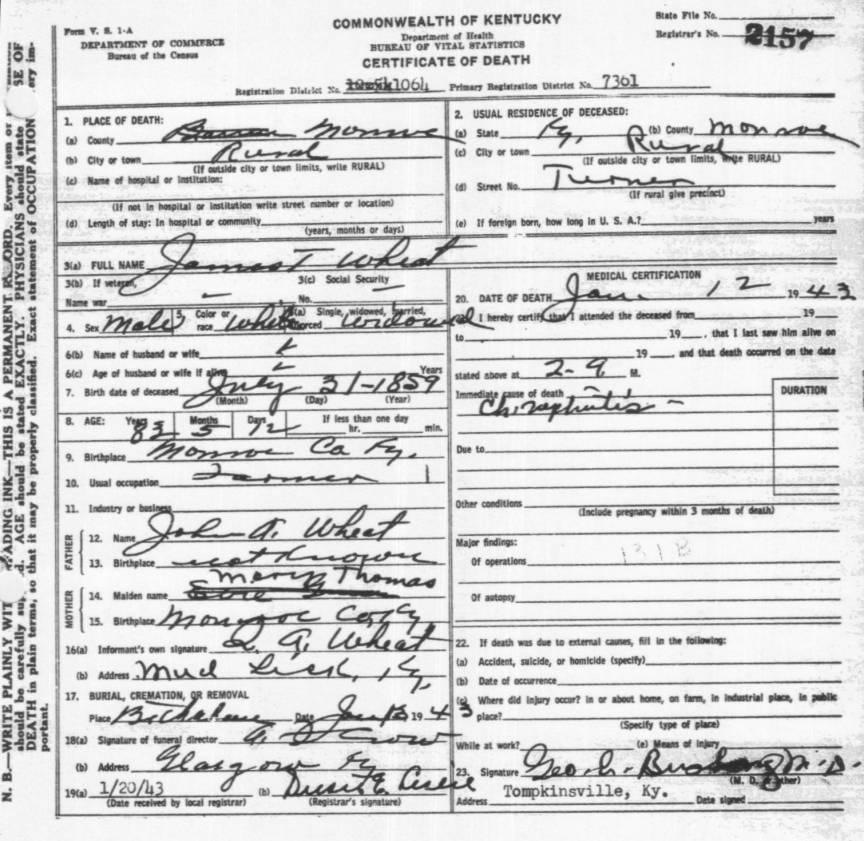 Form V. S. 1-A
DEPARTMENT OF COMMERCE
Bureau of the Census
COMMONWEALTH OF KENTUCKY
Department of Health
BUREAU OF VITAL STATISTICS
CERTIFICATE OF DEATH
State File No.
Registrar's No. 2157
Registration District No. 1064 Primary Registration District No. 7361
1. PLACE OF DEATH:
(a) County Barren Monroe
(b) City or town Rural
(If outside city or town limits, write RURAL)
(c) Name of hospital or institution:
(If not in hospital or institution write street number or location)
(d) Length of stay: In hospital or community
(years, months or days)
2. USUAL RESIDENCE OF DECEASED:
(a) State Ky. (b) County Monroe
(c) City or town Rural
(If outside city or town limits, write RURAL)
(d) Street No. Turner
(If rural give precinct)
(e) If foreign born, how long in U. S. A.? years
3(a) FULL NAME James T Wheat
3(b) If veteran, Name war - 3(c) Social Security No. -
4. Sex Male 5. Color or race White 6(a) Single, widowed, married, divorced Widowed
6(b) Name of husband or wife
6(c) Age of husband or wife if alive Years
7. Birth date of deceased July 31-1859
(Month) (Day) (Year)
8. AGE: Years 83 Months 5 Days 12 If less than one day hr. min.
9. Birthplace Monroe Co Ky.
10. Usual occupation Farmer
11. Industry or business
FATHER
12. Name John A. Wheat
13. Birthplace not Known
MOTHER
Mary Thomas
14. Maiden name
15. Birthplace Monroe Co Ky
16(a) Informant's own signature A. Wheat
(b) Address Mud Lick, Ky.
17. BURIAL, CREMATION, OR REMOVAL
Place Date Jan 13 1943
18(a) Signature of funeral director Crow
(b) Address Glasgow Ky
19(a) 1/20/43 (b)
(Date received by local registrar) (Registrar's signature)
MEDICAL CERTIFICATION
20. DATE OF DEATH Jan. 12 1943
I hereby certify that I attended the deceased from 19
to 19, that I last saw him alive on
19, and that death occurred on the date
stated above at 2-9 M.
Immediate cause of death
DURATION
Due to
Other conditions
(Include pregnancy within 3 months of death)
Major findings:
Of operations 131B
Of autopsy
22. If death was due to external causes, fill in the following:
(a) Accident, suicide, or homicide (specify)
(b) Date of occurrence
(c) Where did injury occur? in or about home, on farm, in industrial place, in public
place?
(Specify type of place)
While at work? (e) Means of injury
23. Signature Geo. M.D.
(M. D. or other)
Address Tompkinsville, Ky. Date signed